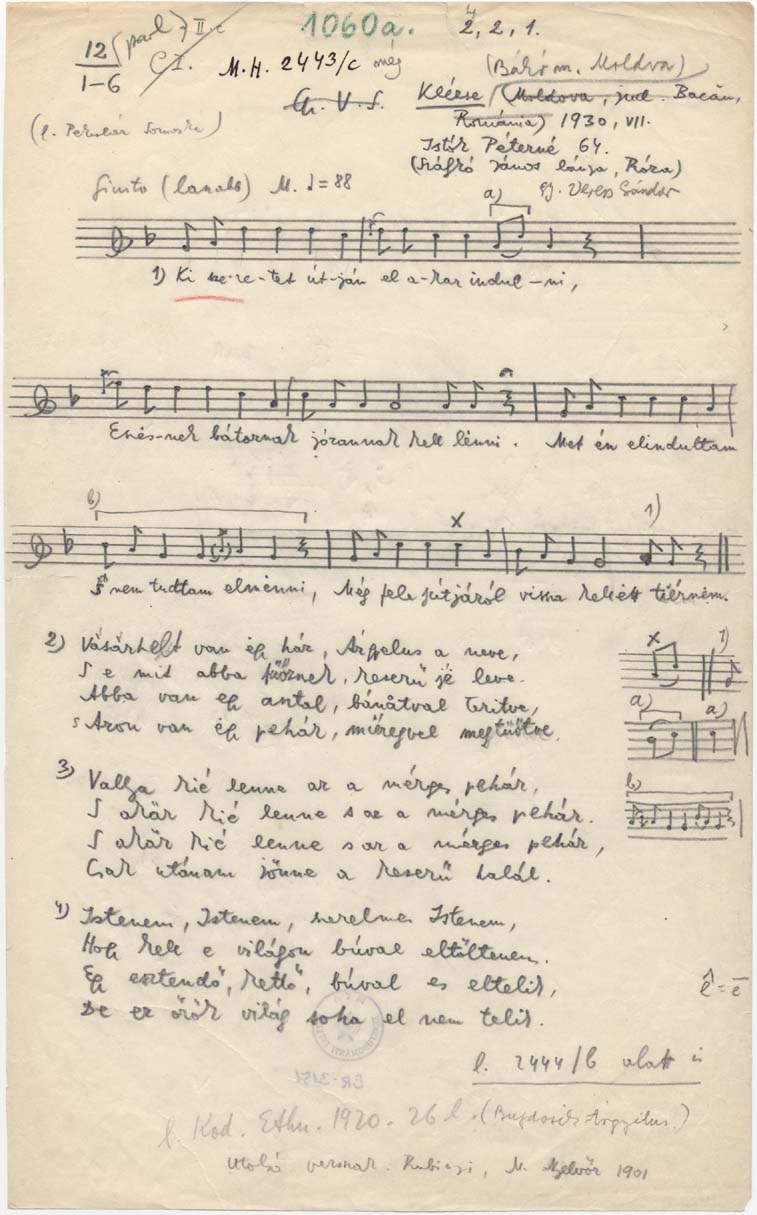 12 (parl.) II. c
1-6 C I.
1060a.
4
2, 2, 1.
M. H. 2443/c még
(Bákó m. Moldva)
Gy. V. S.
Klézse (Moldova, jud. Bacău,
România) 1930, VII.
(l. Péterné Somoska)
Istók Péterné 64.
(Szályró János lánya, Róza)
Giusto (lanabb) M. ♩=88
a)
gy. Veress Sándor
1) Ki sze-re-tet út-ján el a-kar indul-ni,
Enés-nek bátornak józannak kell lënni. Met én elindultam
b)
x
1)
S nem tudtam elmënni, Még fele útjáról vissza kellëtt tiérnëm.
2) Vásárhelt van ëgy ház, Árgyelus a neve,
S e mit abba főőznek, keserű jë leve.
Abba van egy asztal, bánatval terítve,
s Azon van ëgy pehár, mëregvel megtűőtve.
x
1)
a)
a)
b)
3) Vallya kié lenne az a mérges pehár,
S akár kié lenne s az a mérges pehár.
S akár kié lenne s az a mérges pehár,
Csak utánam jönne a keserű halál.
4) Istenem, Istenem, szerelmes Istenem,
Hogy kell e világon búval eltőltenem.
Egy esztendő, kettő, búval es eltelik,
De ez örök világ soha el nem telik.
ê = ē
l. 2444/b alatt is
BR-3151
l. Kod. Ethn. 1920. 26 l. (Bujdosik Árgyilus.)
Utolsó versszak. Rubinyi, M. Nyelvőr 1901